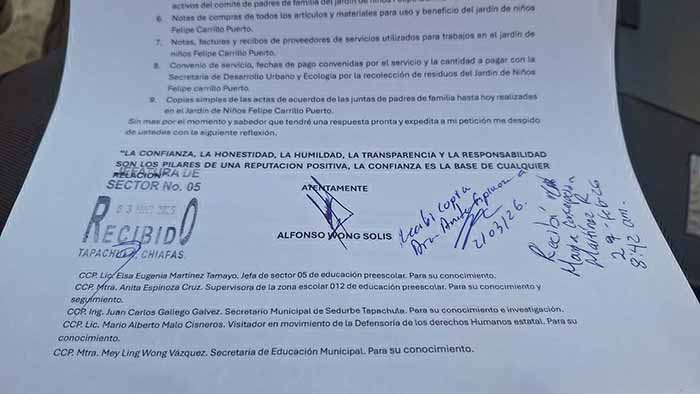 activos del comité de padres de familia del jardín de niños Felipe
6. Notas de compras de todos los artículos y materiales para uso y beneficio del jardín de niños
Felipe Carrillo Puerto.
7. Notas, facturas y recibos de proveedores de servicios utilizados para trabajos en el jardín de
niños Felipe Carrillo Puerto.
8. Convenio de servicio, fechas de pago convenidas por el servicio y la cantidad a pagar con la
Secretaria de Desarrollo Urbano y Ecología por la recolección de residuos del Jardín de Niños
Felipe carrillo Puerto.
9. Copias simples de las actas de acuerdos de las juntas de padres de familia hasta hoy realizadas
en el Jardín de Niños Felipe Carrillo Puerto.
Sin mas por el momento y sabedor que tendré una respuesta pronta y expedita a mi petición me despido
de ustedes con la siguiente reflexión.
"LA CONFIANZA, LA HONESTIDAD, LA HUMILDAD, LA TRANSPARENCIA Y LA RESPONSABILIDAD
SON LOS PILARES DE UNA REPUTACION POSITIVA, LA CONFIANZA ES LA BASE DE CUALQUIER
RELACION
JEFATURA DE
SECTOR No. 05
RECIBIDO
TAPACHULA, CHIAPAS.
ATENTAMENTE
ALFONSO WONG SOLIS
Recibi copia
Dra. Anita Espinoza
2/03/26.
Recibí
Martínez R
8:42 am.
CCP. Lic. Elsa Eugenia Martínez Tamayo. Jefa de sector 05 de educación preescolar. Para su conocimiento.
CCP. Mtra. Anita Espinoza Cruz. Supervisora de la zona escolar 012 de educación preescolar. Para su conocimiento y
seguimiento.
CCP. Ing. Juan Carlos Galiego Galvez. Secretario Municipal de Sedurbe Tapachula. Para su conocimiento e investigación.
CCP. Lic. Mario Alberto Malo Cisneros. Visitador en movimiento de la Defensoría de los derechos Humanos estatal. Para su
conocimiento.
CCP. Mtra. Mey Ling Wong Vázquez. Secretaria de Educación Municipal. Para su conocimiento.